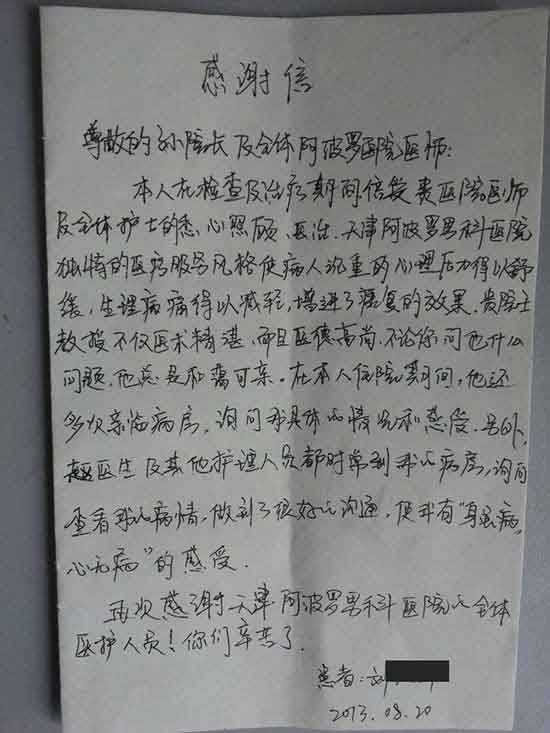 感谢信
尊敬的孙院长及全体阿波罗医院医师:
本人在检查及治疗期间倍受贵医院医师
及全体护士的悉心照顾、医治、天津阿波罗男科医院
独特的医务服务风格使病人沉重的心理压力得以舒
缓,生理病痛得以减轻,增进了痊复的效果.贵院王
教授不仅医术精湛,而且医德高尚.不论你问他什么
问题.他总是和蔼可亲。在本人住院期间,他还
多次亲临病房,询问我具体的情况和感受.另外,
赵医生及其他护理人员都时常到我的病房,询问
查看我的病情,做到了很好的沟通,使我有"身虽病,
心无病"的感受.
再次感谢天津阿波罗男科医院的全体
医护人员!你们辛苦了.
患者:刘
2013.08.20